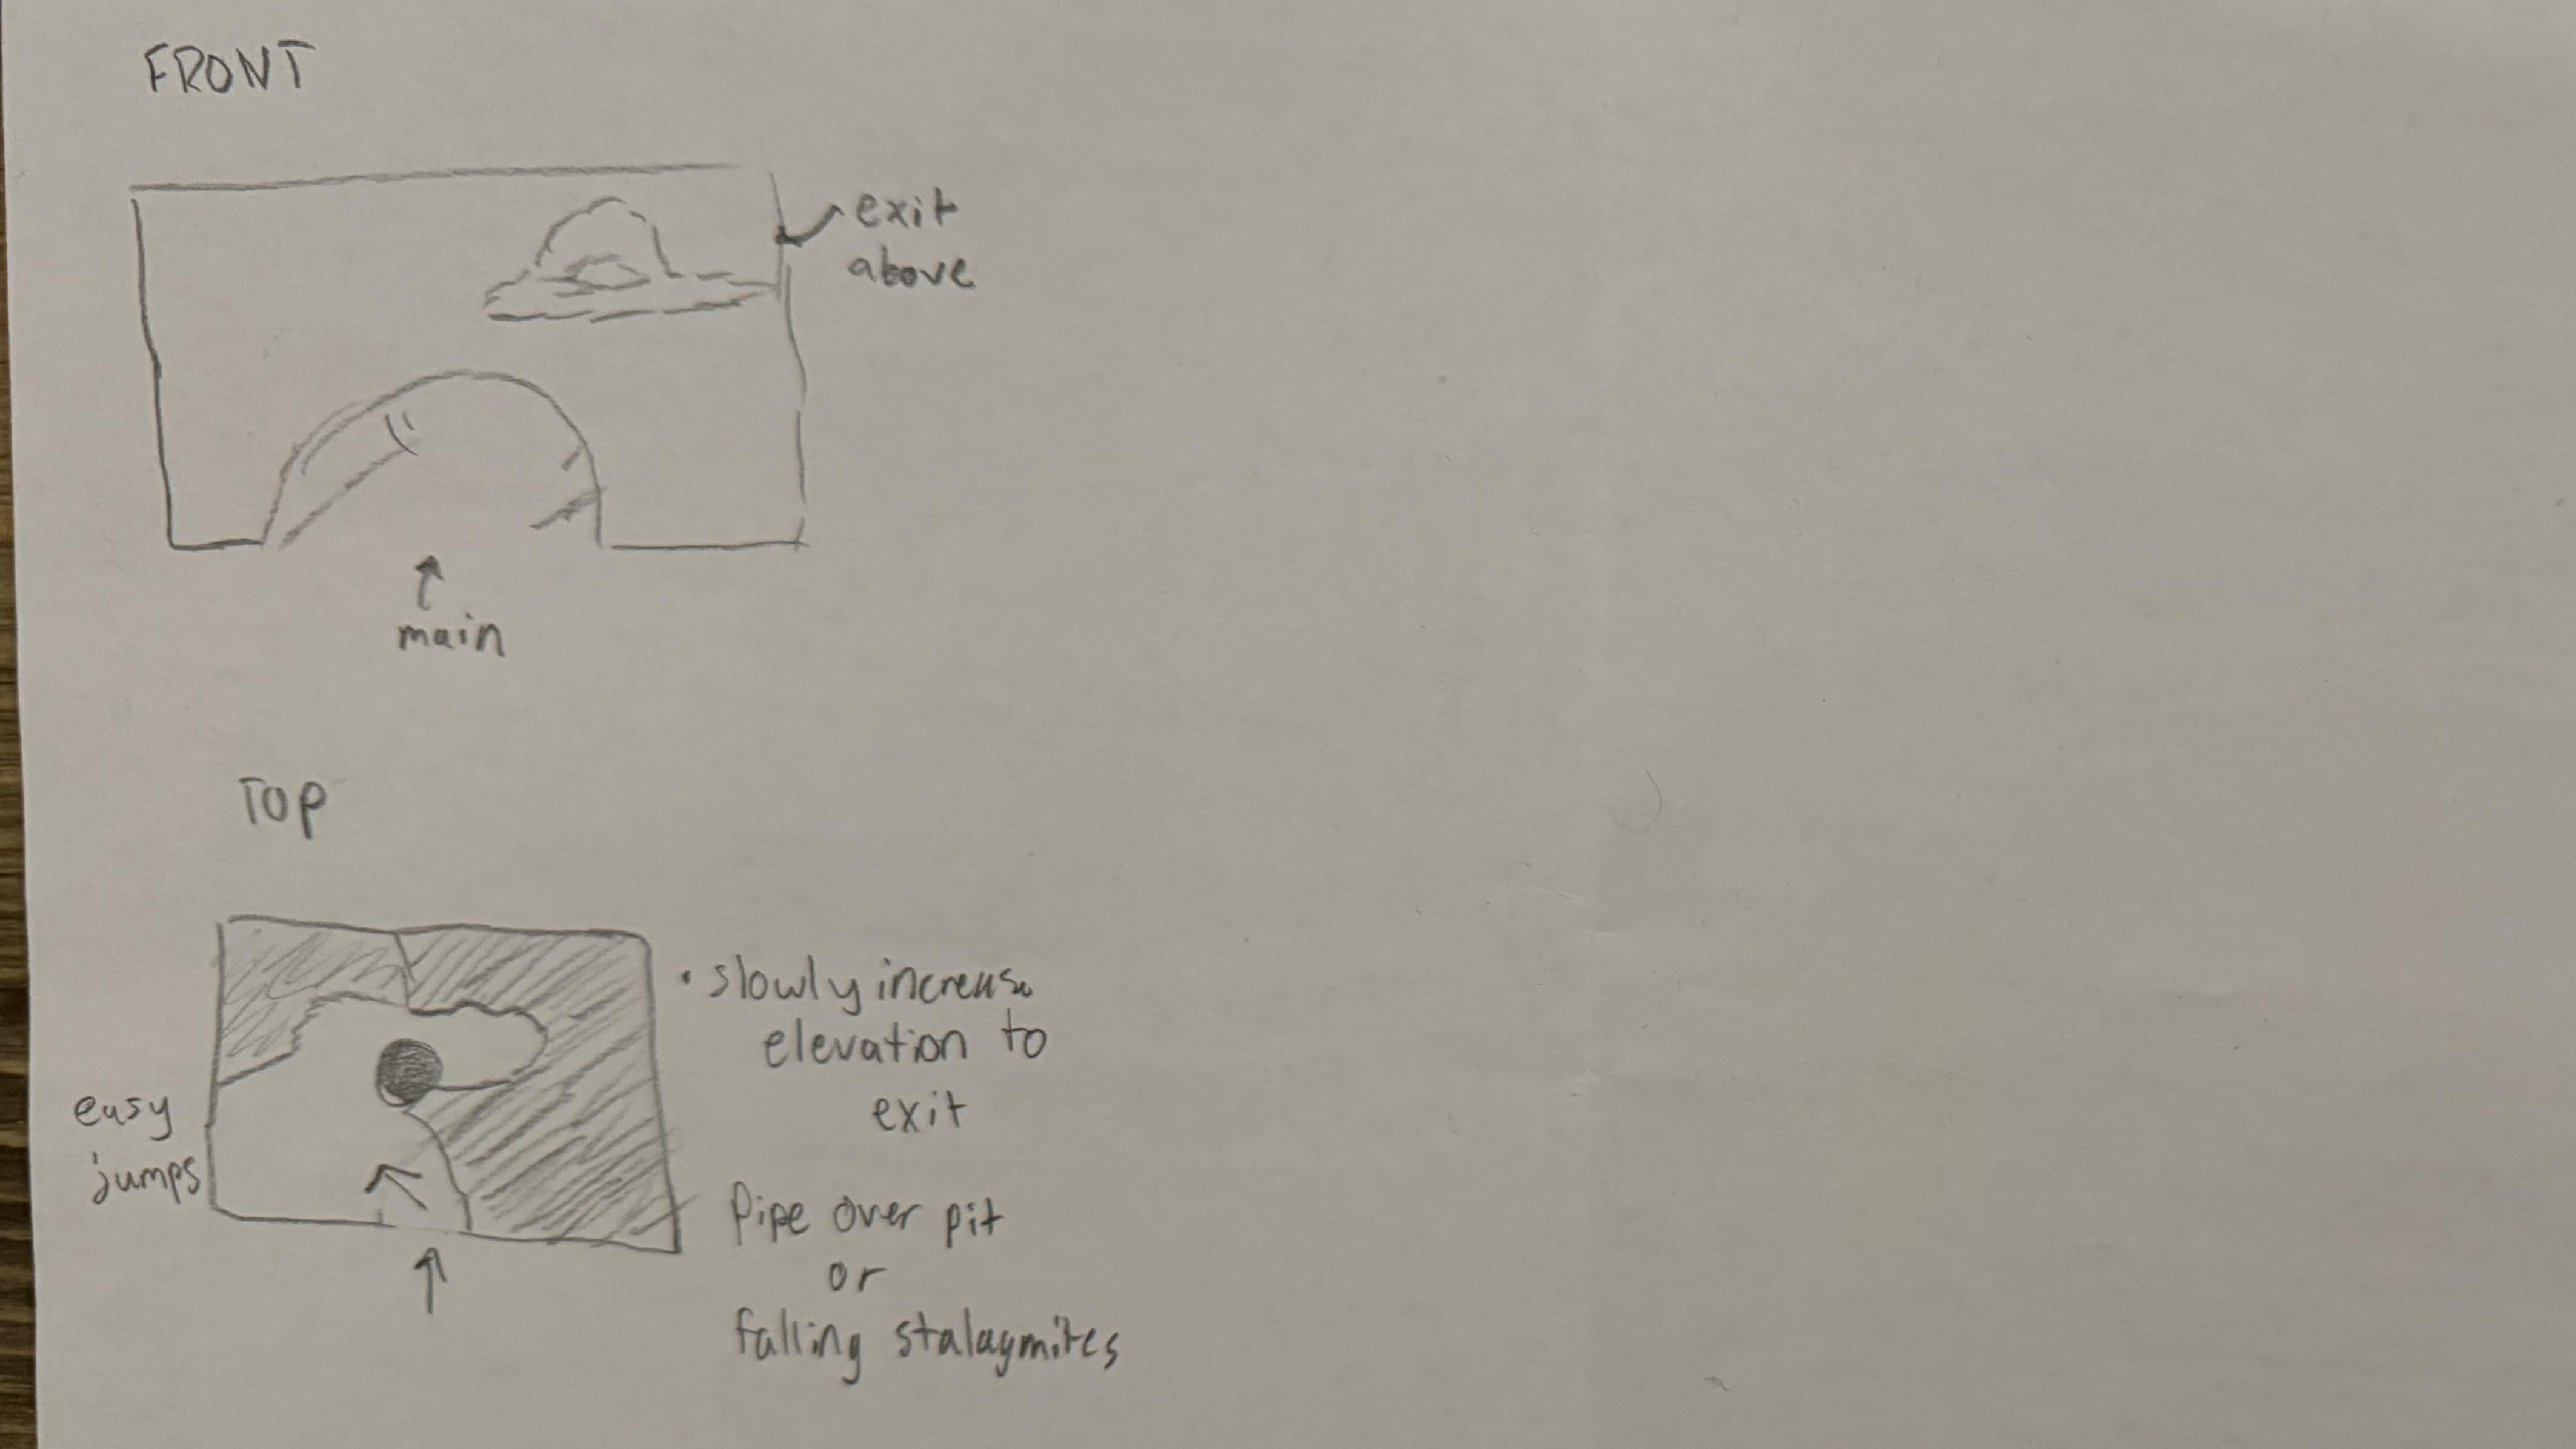 FRONT
exit
above
main
TOP
easy
jumps
• slowly increase
elevation to
exit
Pipe over pit
or
falling stalagmites